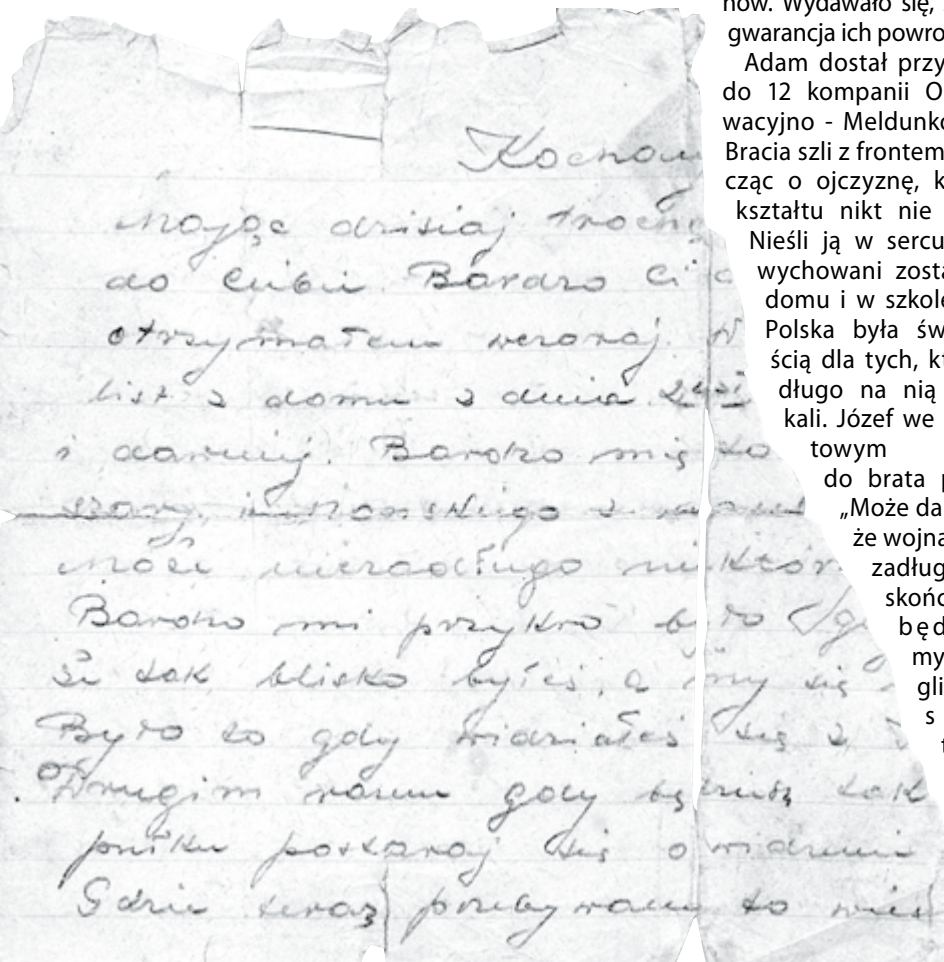 Kochan
Mając dzisiaj troch
do Ciebie Bardzo Ci
otrzymałem wczoraj. W
list z domu z dnia
i dawniej. Bardzo mię to
szarej,
niezadługo
Bardzo mi przykro było
Że tak blisko byłeś, a my się
Było to gdy widziałeś się z
Drugim razem gdy będziesz tak
pułku postaraj się o widzenie
Gdzie teraz przebywam to wies
now. Wydawało się,
gwarancja ich powro
Adam dostał przy
do 12 kompanii O
wacyjno - Meldunko
Bracia szli z frontem
cząc o ojczyznę, k
kształtu nikt nie
Nieśli ją w sercu
wychowani zosta
domu i w szkole
Polska była św
ścią dla tych, kt
długo na nią
kali. Józef we
towym
do brata p
„Może da
że wojna
zadług
skońc
będ
my
gli
s
t